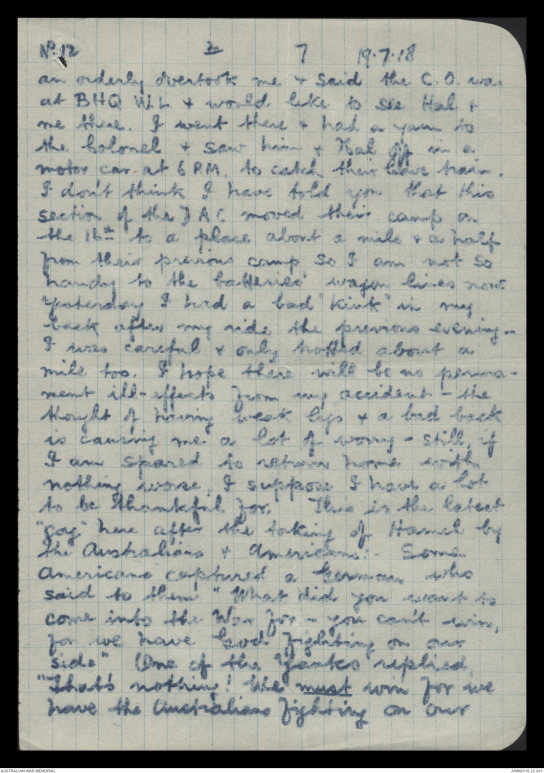 No. 12 2 7 19.7.18
an orderly overtook me & said the C.O. was
at BHQ W.L & would like to see Hal &
me there. I went there & had a yarn to
the Colonel & saw him & Hal off in a
motor car at 6 P.M. to catch their leave train.
I don't think I have told you that this
section of the DAC moved their camp on
the 16th to a place about a mile & a half
from their previous camp so I am not so
handy to the batteries' wagon lines now
Yesterday I had a bad "kink" in my
back after my ride the previous evening -
I was careful & only trotted about a
mile too. I hope there will be no perma-
ment ill-effects from my accident - the
thought of having weak legs & a bad back
is causing me a lot of worry - still, if
I am spared to return home with
nothing worse, I suppose I have a lot
to be thankful for. This is the latest
"gag" here after the taking of Hamel by
the Australians & Americans:- Some
Americans captured a German who
said to them "What did you want to
come into the War for - you can't win,
for we have God fighting on our
side" One of the Yanks replied,
"That's nothing! We must win for we
have the Australians fighting on our
AUSTRALIAN WAR MEMORIAL